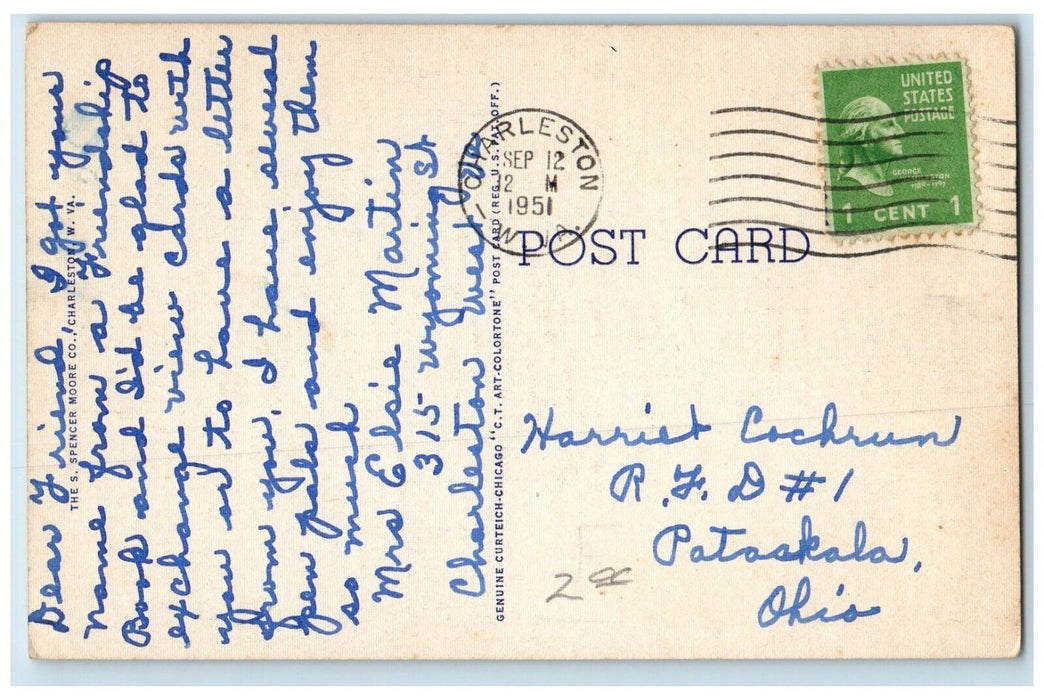 Dear Friend, I got your
name from a Friendship
Book and I'd be glad to
exchange view cards with
you or to have a letter
from you, I have several
pen pals and enjoy them
so much
Mrs Elsie Martin
315 Wyoming St
Charleston West Va
THE S. SPENCER MOORE CO., CHARLESTON, W. VA.
GENUINE CURTEICH-CHICAGO "C.T. ART-COLORTONE" POST CARD (REG. U.S. PAT. OFF.)
CHARLESTON
SEP 12
12 M
1951
W.
POST CARD
UNITED
STATES
POSTAGE
GEORGE
WASHINGTON
1789-1797
1 CENT 1
Harriet Cochrun
R.F.D #1
Pataskala,
Ohio
2